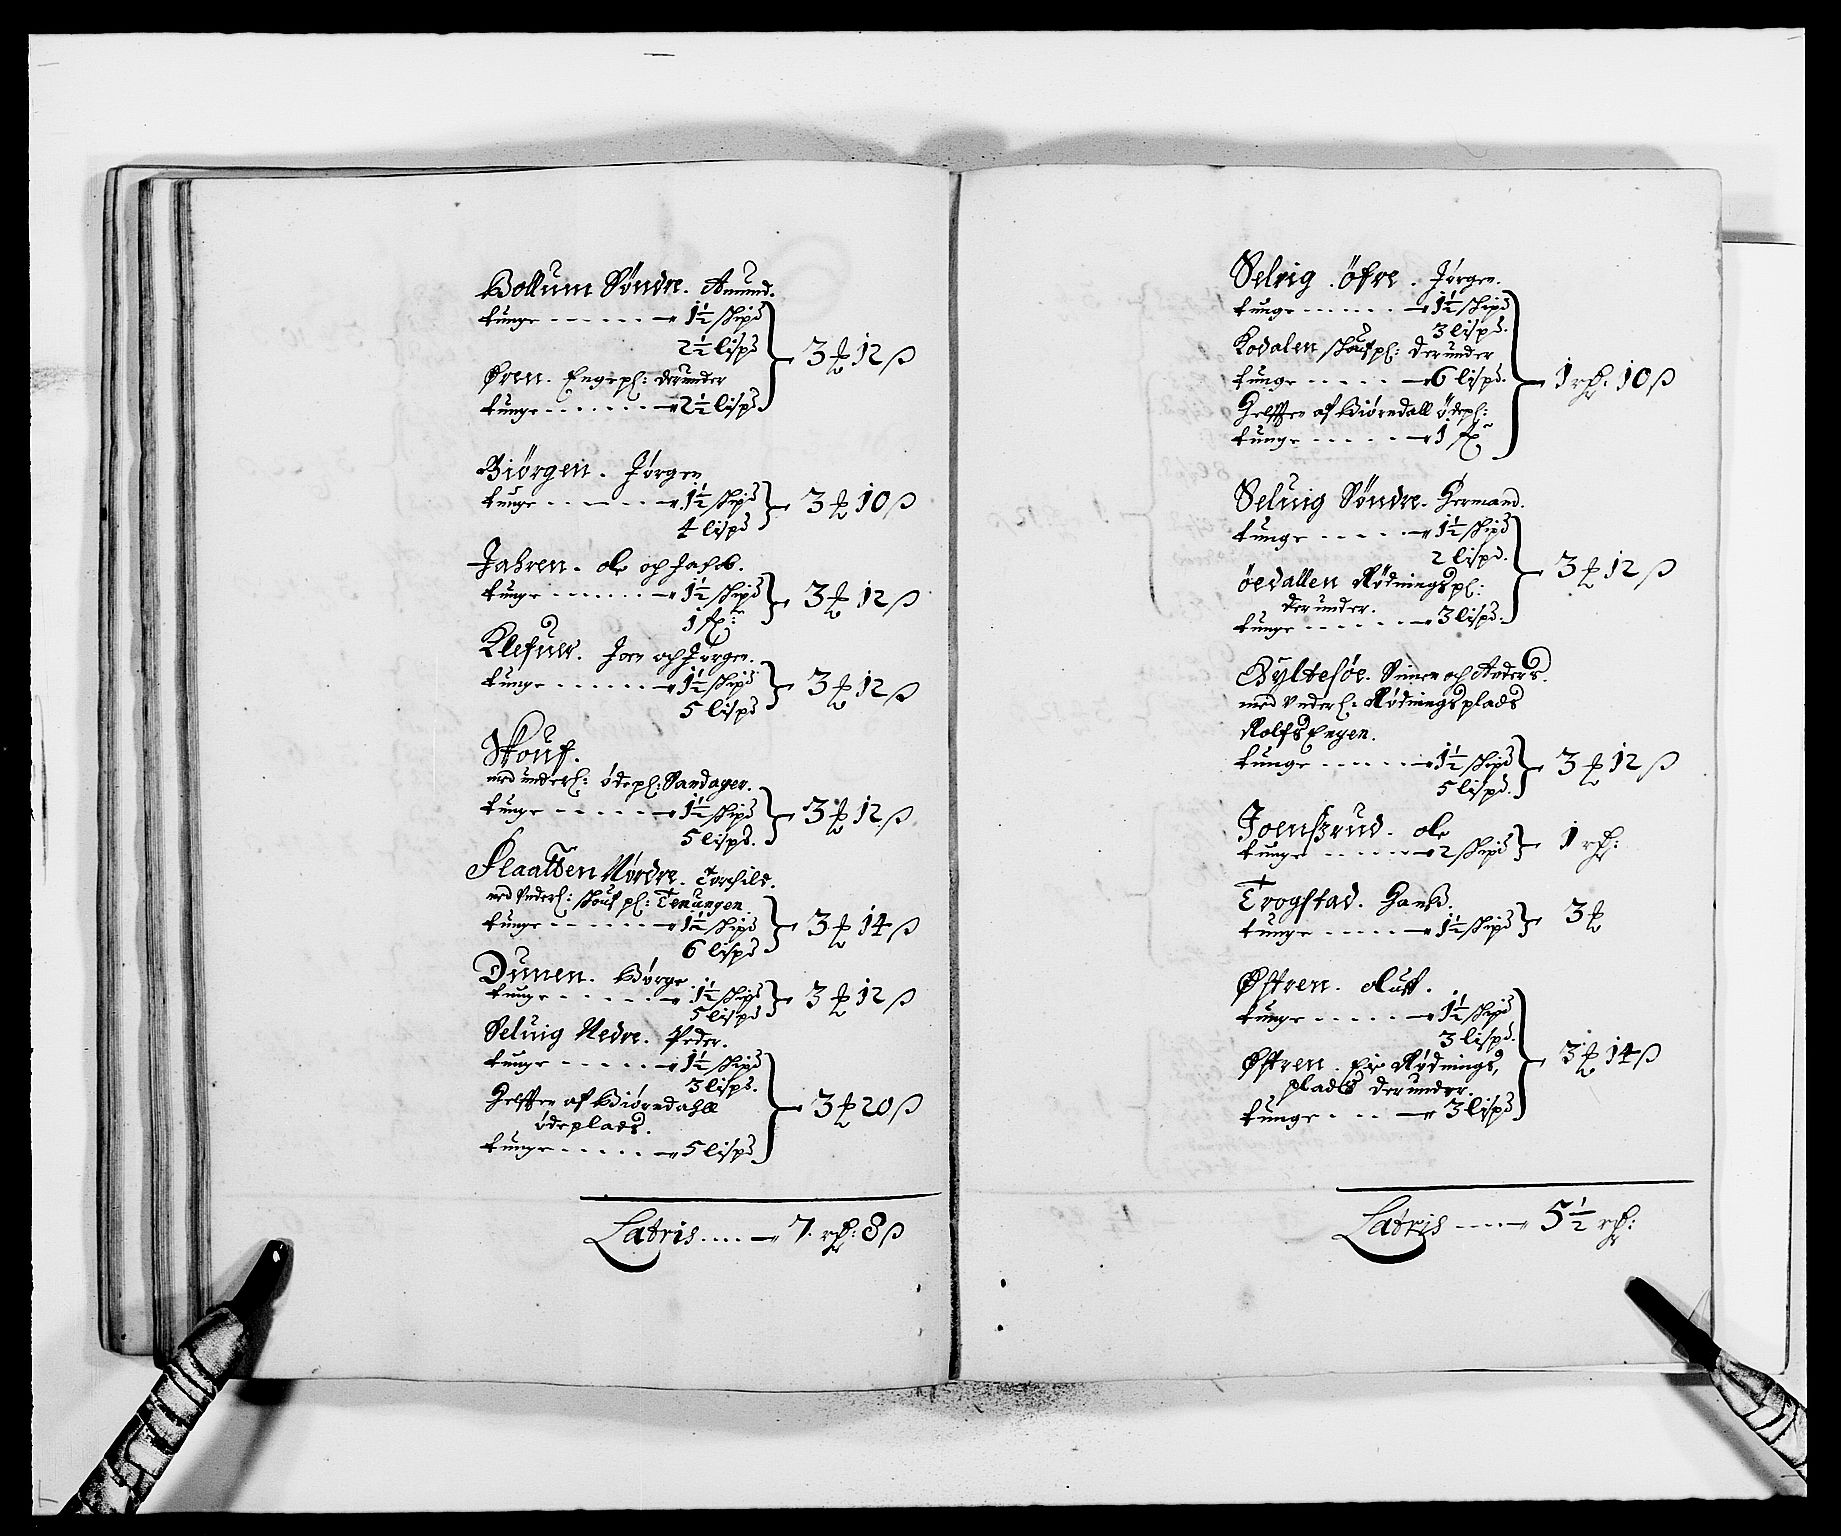 Bollum Søndre. Amund.
tunge - - - - - - 1½ skipd
2½ lispd
Øren. Engepl: derunder
tunge - - - - - - 2½ lispd
3 ₰ 12 ß
Biørgen. Jørgen
tunge - - - - - - 1½ skipd
4 lispd
3 ₰ 10 ß
Jahren. ole och Jacob.
tunge - - - - - - 1½ skipd
3 ₰ 12 ß
Klefuer. Joen och Jørgen.
tunge - - - - - - 1½ skipd
5 lispd
3 ₰ 12 ß
Skouf.
med underl: ødepl: Sandager.
tunge - - - - - - 1½ skipd
5 lispd.
3 ₰ 12 ß
Flaatten Nordre. Torchild.
med Underl: skouf pl: Tenungen
tunge - - - - - - 1½ skipd
6 lispd
3 ₰ 14 ß
Dunen. Børge.
tunge - - - - - - 1½ skipd
5 lispd
3 ₰ 12 ß
Seluig Nedre. Peder.
tunge - - - - - - 1½ skipd
3 lispd.
Helfften af Biørndahll
ødeplads.
tunge - - - - - - 5 lispd
3 ₰ 20 ß
Latris - - - - 7 rd: 8 ß
Selvig. öfre. Jørgen.
tunge - - - - - - 1½ skipd
3 lispd.
Kodalen skoufpl: derunder
tunge - - - - - 6 lispd.
Helfften af Biørndall ödepl:
tunge - - - - - 1 
1 rd: 10 ß
Seluig Søndre. Hermand.
tunge - - - - - 1½ skipd
2 lispd.
öedallen Rødningspl:
derunder.
tunge - - - - - 3 lispd.
3 ₰ 12 ß
Bylterøe. Simen och Anders.
med Underl: Rødningsplads
Rolfs Engen.
tunge - - - - - - 1½ skipd
5 lispd.
3 ₰ 12 ß
Joensrud. ole
tunge - - - - - - 2 skipd
1 rd:
Trogstad. Hanß.
tunge - - - - - 1½ skipd
3 ₰
Østren. oluff.
tunge - - - - - - 1½ skipd
3 lispd.
Østren. Eie Rødnings,
plads derunder.
tunge - - - - - 3 lispd
3 ₰ 14 ß
Latris - - - - 5½ rd: